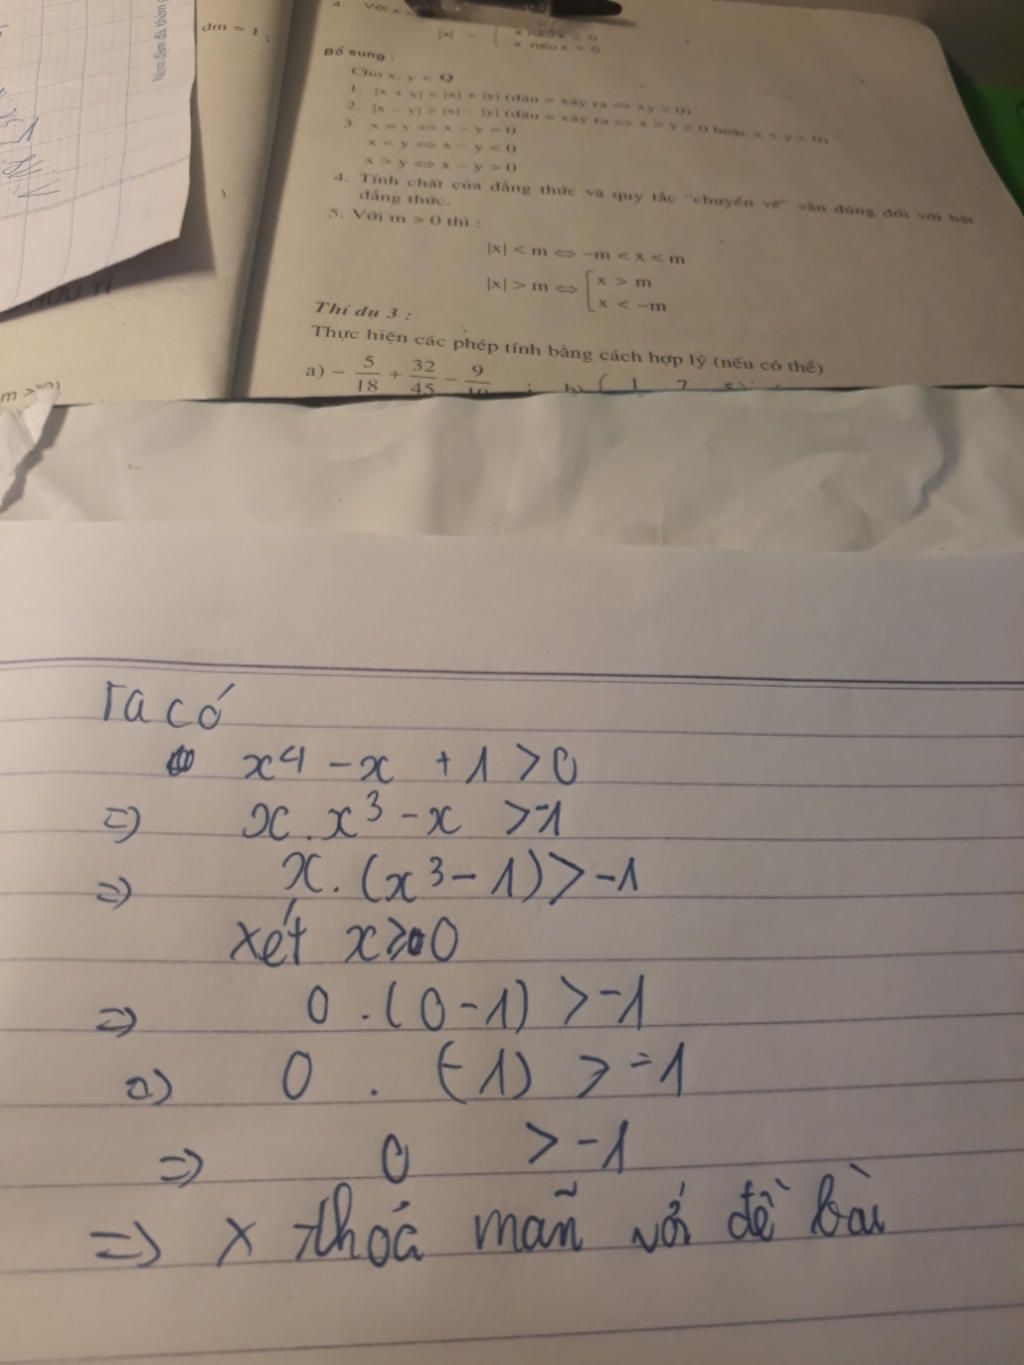 dm = 1 ;
4. Với x
|x| =
x nếu x ≥ 0
x nếu x < 0
Bổ sung :
Cho x, y ∈ Q
1. |x + y| ≤ |x| + |y| (dấu = xảy ra ⇔ xy ≥ 0)
2. |x − y| ≥ |x| − |y| (dấu = xảy ra ⇔ x ≥ y ≥ 0 hoặc x ≤ y ≤ 0)
3. x = y ⇔ x − y = 0
x < y ⇔ x − y < 0
x > y ⇔ x − y > 0
4. Tính chất của đẳng thức và quy tắc "chuyển vế" vẫn đúng đối với bất
đẳng thức.
5. Với m > 0 thì :
|x| < m ⇔ −m < x < m
|x| > m ⇔ [ x > m
x < −m
Thí dụ 3 :
Thực hiện các phép tính bằng cách hợp lý (nếu có thể)
a) − 5/18 + 32/45 − 9/10 ;
Ta có
x⁴ − x + 1 > 0
=> x . x³ − x > −1
=> x . (x³ − 1) > −1
xét x ≥ 0
=> 0 . (0 − 1) > −1
=> 0 . (−1) > −1
=> 0 > −1
=> x thoả mãn với đề bài